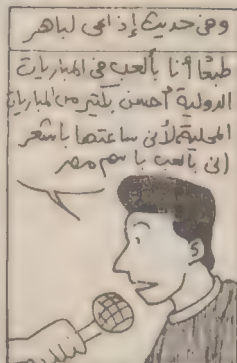 وفى حديث إذاعى لباهر
طبعًا أنا بألعب فى المباريات
الدولية أحسن بكتير من المباريات
المحلية لأنى ساعتها باشعر
انى بالعب باسم مصر